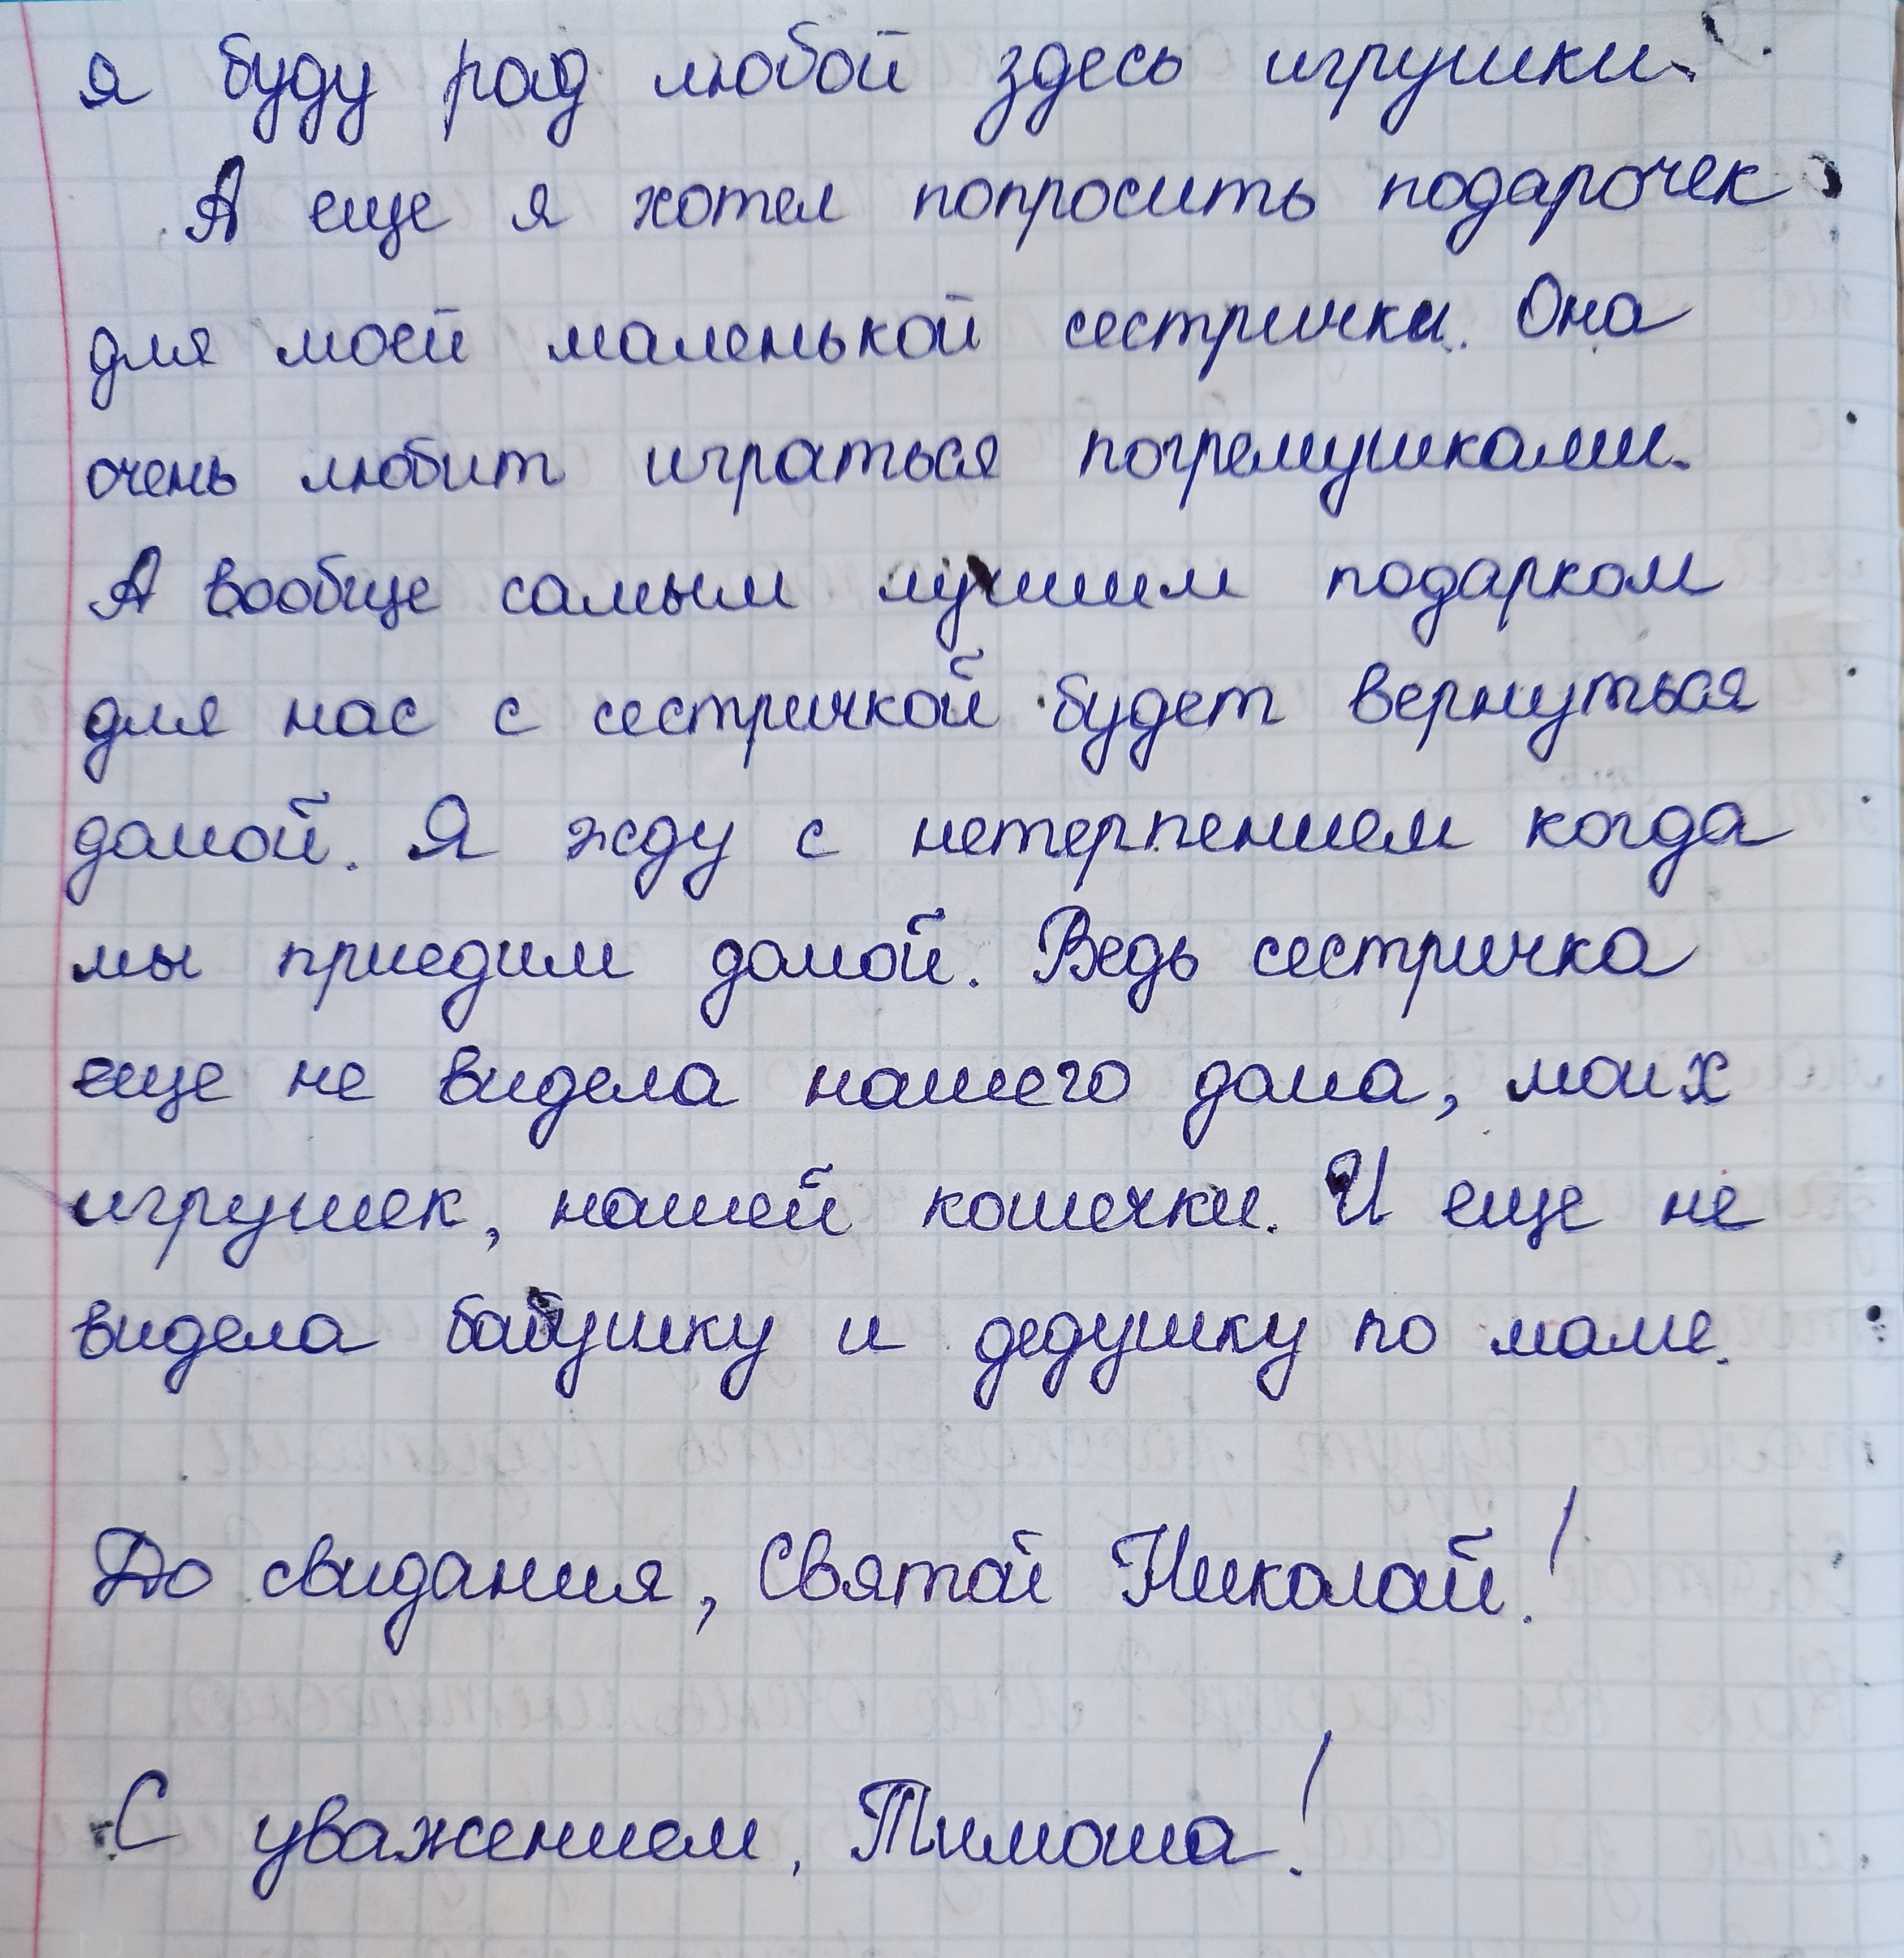 я буду рад любой здесь игрушки.
А еще я хотел попросить подарочек
для моей маленькой сестрички. Она
очень любит играться погремушками.
А вообще самым лучшим подарком
для нас с сестричкой будет вернуться
домой. Я жду с нетерпением когда
мы приедим домой. Ведь сестричка
еще не видела нашего дома, моих
игрушек, нашей кошечки. И еще не
видела бабушку и дедушку по маме.
До свидания, Святой Николай!
С уважением, Тимоша!